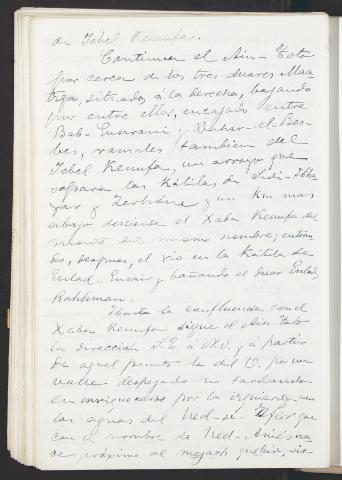 de Jebel Kemufa.
Continua el Ain-Toto
por cerca de los tres duares Maa
situados á la derecha, bajando
por entre ellos, encajado entre
Bab-Ensarani y Dahar-el-Bes-
bes, ramales tambien del
Jebel Kemufa, un arroyo que
separa las Kábilas de Sidi-
y Zerhana y un km mas
abajo desciende el Xaba Kemufa del
monte del mismo nombre; entran-
do, despues, el rio en la Kábila de
Enlad-Ensair y bañando el duar Enlad,
Rahhman.
Hasta la confluencia con el
Xaba Kemufa sigue el Ain Toto
la direccion S.E. á N.O. y á partir
de aquel punto la del O. por un
valle despegado no tardando
en enriquecerse por la izquierda con
las aguas del Ued-el- que
con el nombre de Ued- na
ce próximo al que